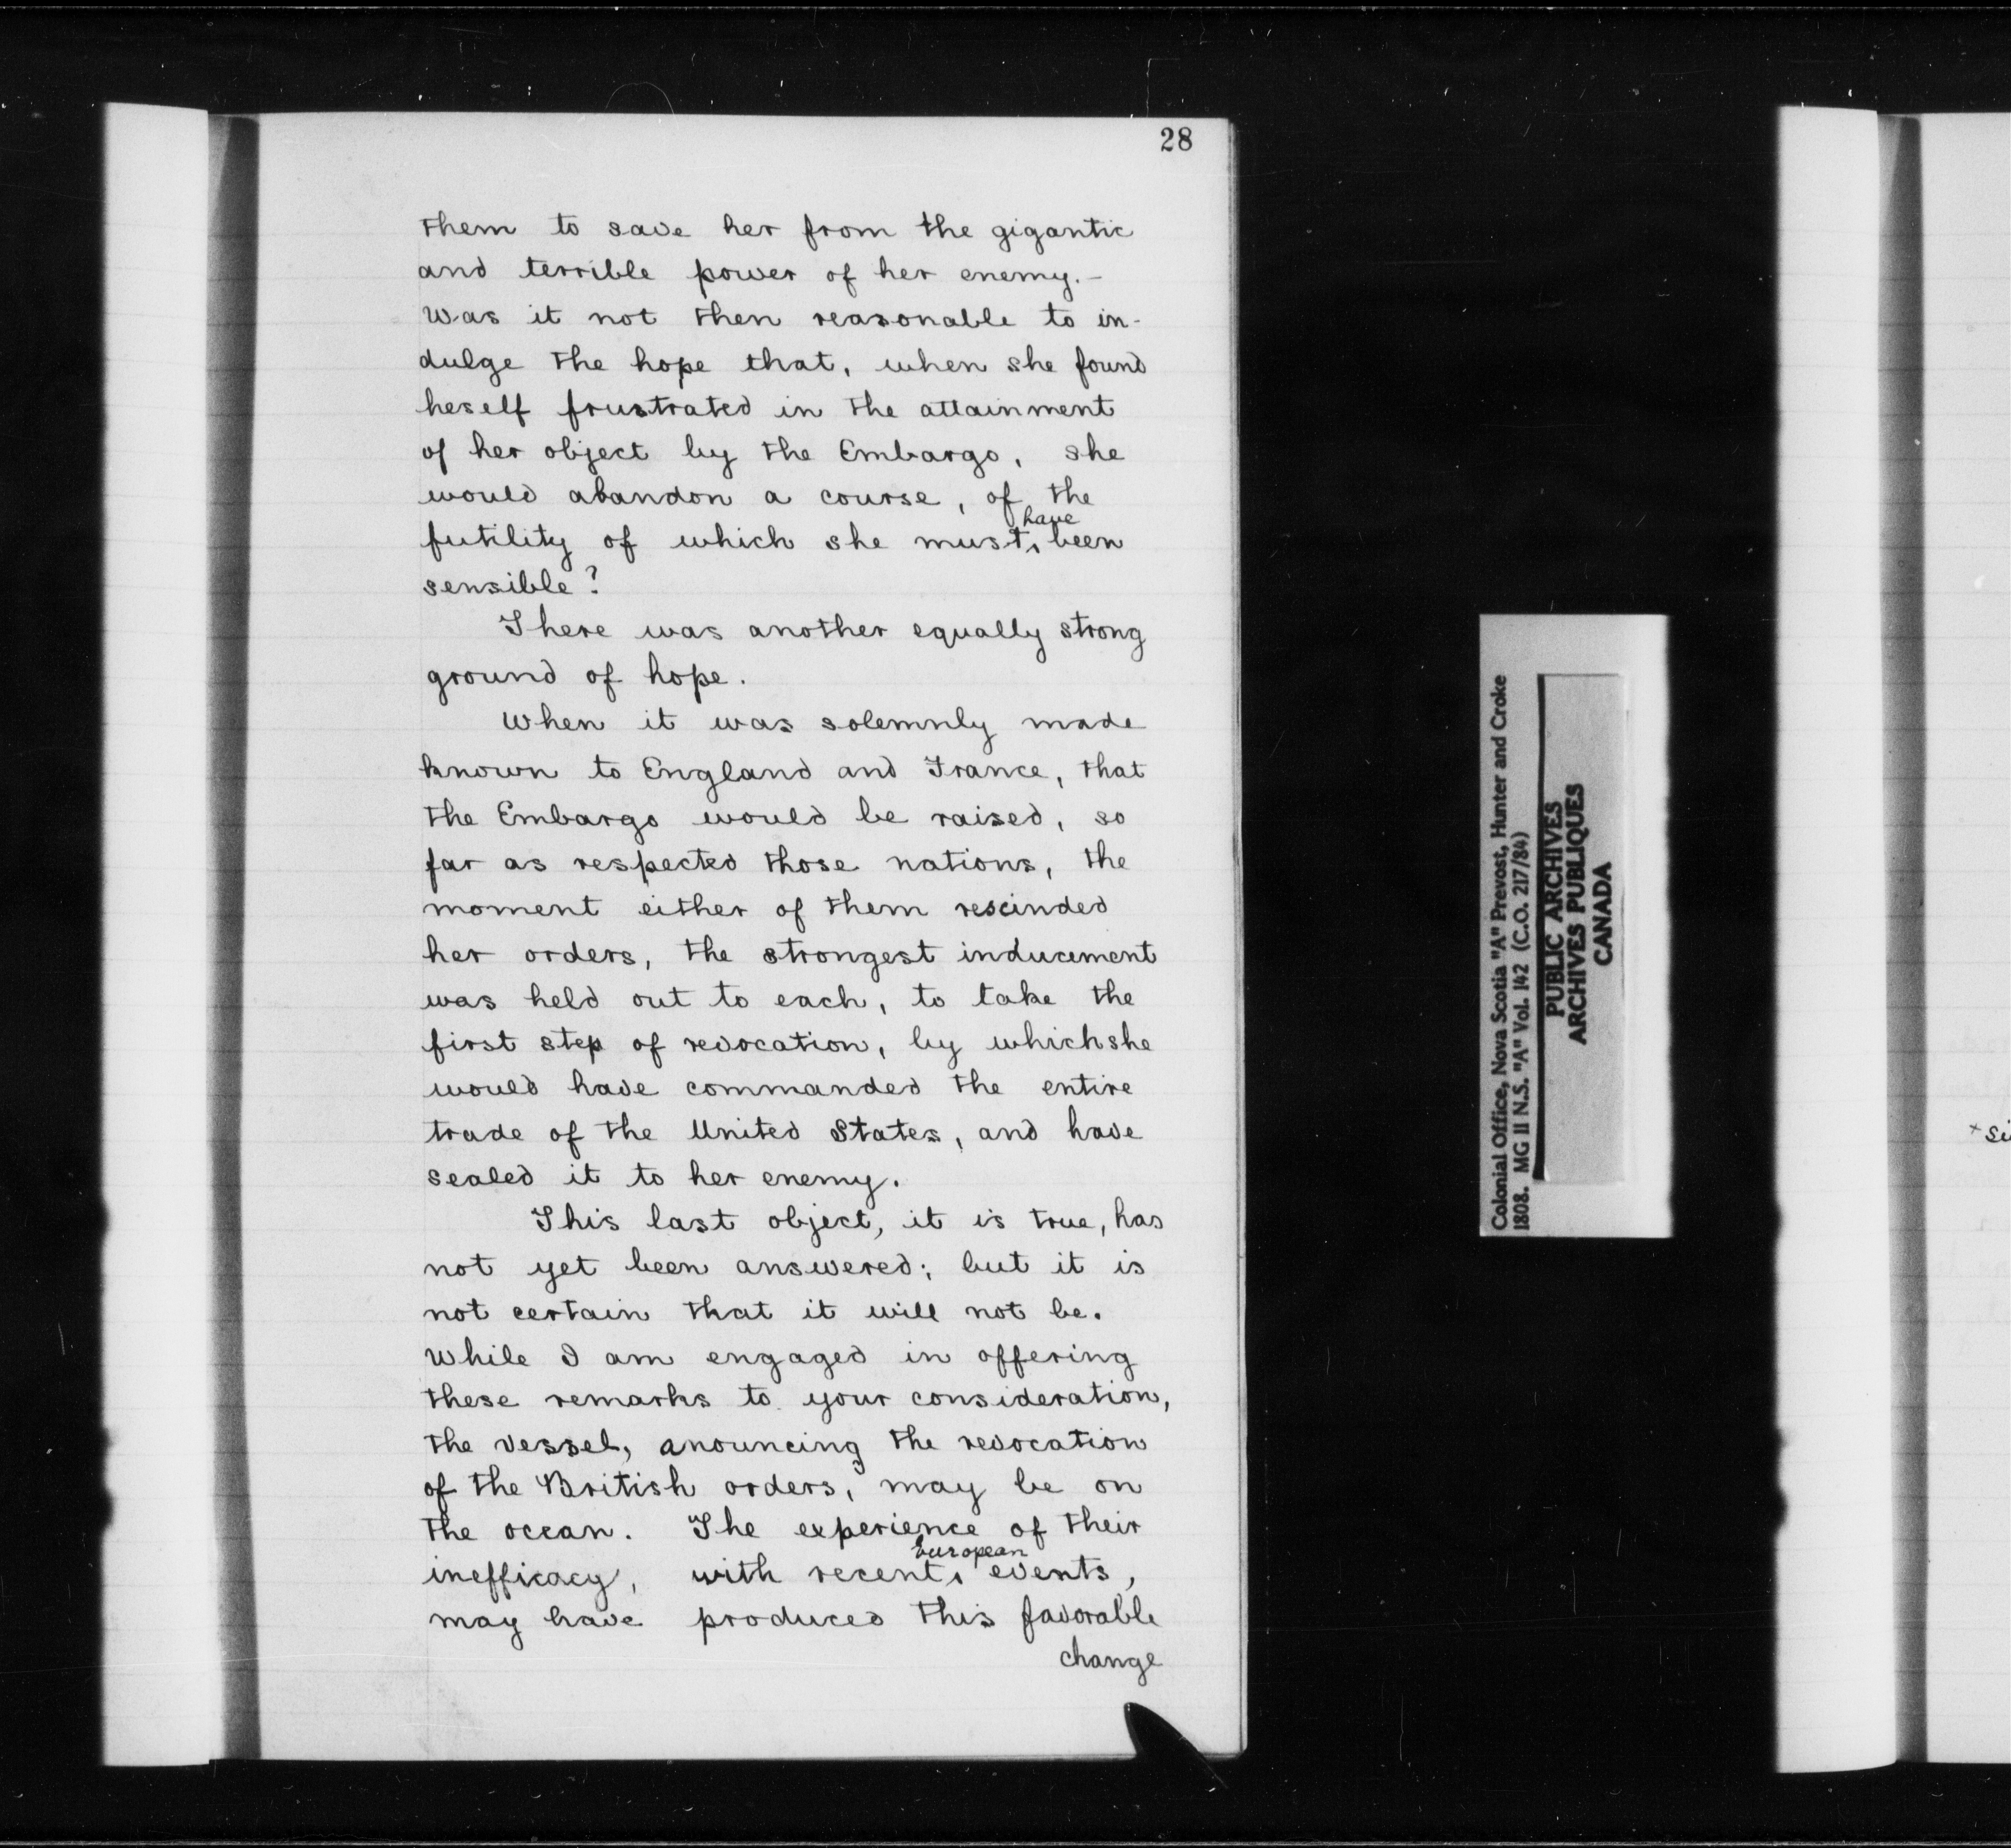 28
them to save her from the gigantic
and terrible power of her enemy.-
Was it not then reasonable to in-
dulge the hope that, when she found
heself frustrated in the attainment
of her object by the Embargo, she
would abandon a course, of the
futility of which she must have been
sensible?
There was another equally strong
ground of hope.
When it was solemnly made
known to England and France, that
the Embargo would be raised, so
far as respected those nations, the
moment either of them rescinded
her orders, the strongest inducement
was held out to each, to take the
first step of revocation, by which she
would have commanded the entire
trade of the United States, and have
sealed it to her enemy.
This last object, it is true, has
not yet been answered; but it is
not certain that it will not be.
While I am engaged in offering
these remarks to your consideration,
the vessel, anouncing the revocation
of the British orders, may be on
the ocean. The experience of their
inefficacy, with recent European events,
may have produced this favorable
change
Colonial Office, Nova Scotia "A" Prevost, Hunter and Croke
1808. MG 11 N.S. "A" Vol. 142 (C.O. 217/84)
PUBLIC ARCHIVES
ARCHIVES PUBLIQUES
CANADA